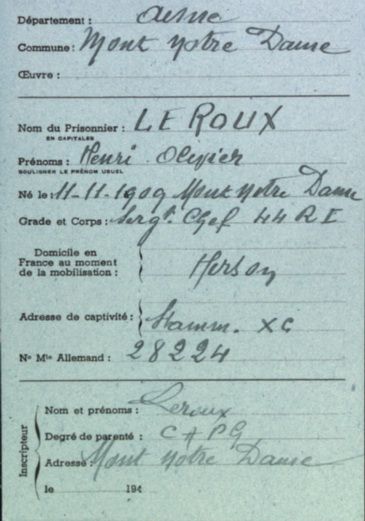 Département : Aisne
Commune : Mont Notre Dame
Œuvre :
Nom du Prisonnier : LE ROUX
EN CAPITALES
Prénoms : Henri Olivier
SOULIGNER LE PRÉNOM USUEL
Né le : 11-11-1909 Mont Notre Dame
Grade et Corps : Sergt. Chef 44 R I
Domicile en
France au moment
de la mobilisation :
Adresse de captivité : Stamm. XC
No Mle Allemand : 28224
Inscripteur
Nom et prénoms : Leroux
Degré de parenté : C A P G
Adresse : Mont Notre Dame
le 194